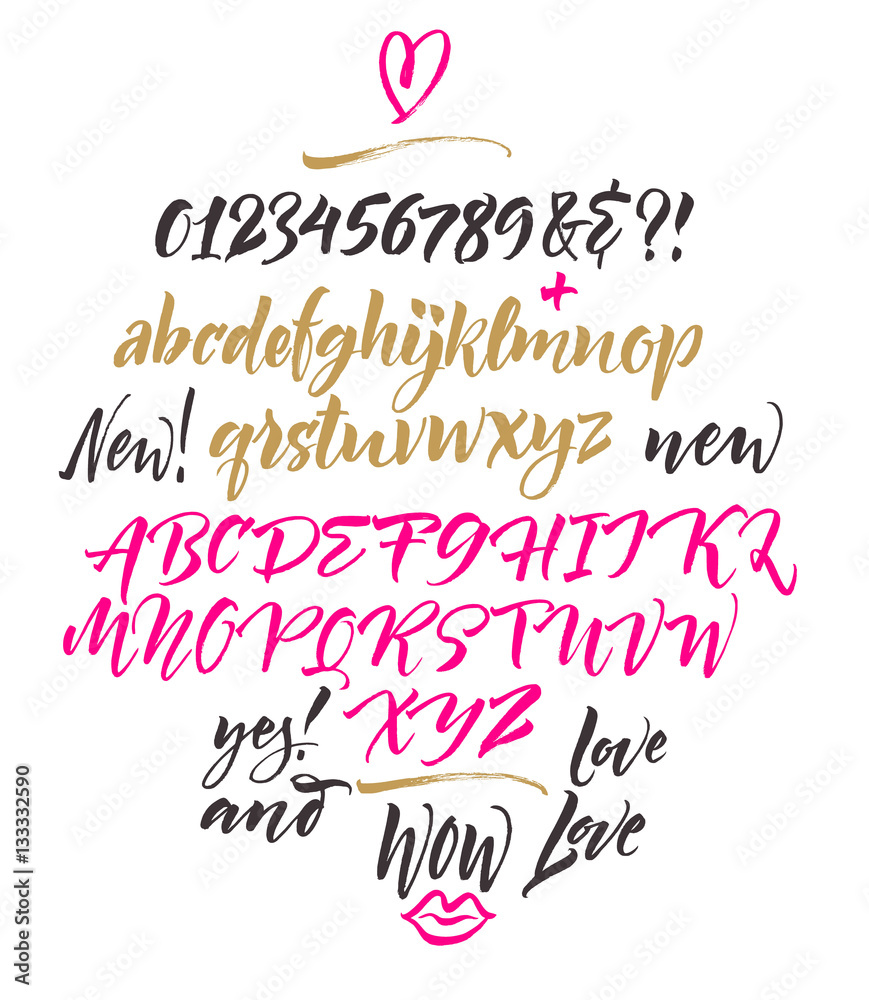 0123456789&&?!
+
abcdefghijklmnop
New! qrstuvwxyz new
ABCDEFGHIJKL
MNOPQRSTUVW
yes! XYZ Love
and WOW Love
Adobe Stock | #133332590